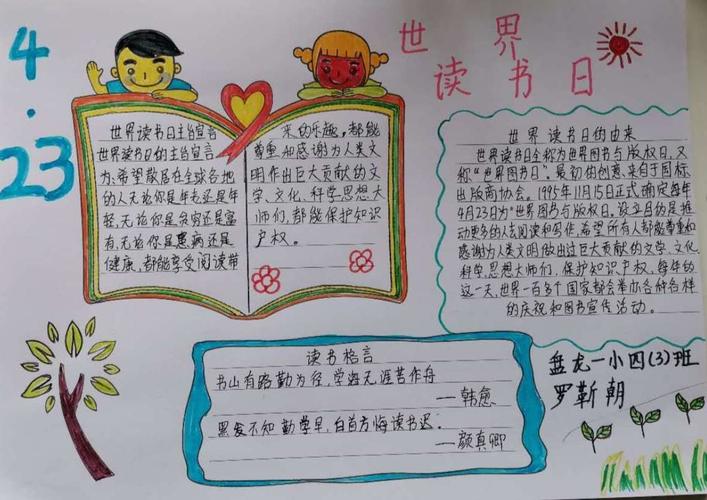 4.23
世界
读书日
世界读书日主旨宣言
世界读书日的主旨宣言
为,希望散居在全球各地
的人无论你是年老还是年
轻,无论你是贫穷还是富
有,无论你是患病还是
健康,都能享受阅读带
来的乐趣,都能
尊重和感谢为人类文
明作出巨大贡献的文
学、文化、科学思想大
师们,都能保护知识
产权。
世界读书日的由来
世界读书日全称为世界图书与版权日,又
称“世界图书日”。最初的创意来自于国际
出版商协会。1995年11月15日正式确定每年
4月23日为“世界图书与版权日。设立目的是推
动更多的人去阅读和写作,希望所有人都能尊重和
感谢为人类文明做出过巨大贡献的文学、文化、
科学、思想大师们,保护知识产权。每年的
这一天,世界一百多个国家都会举办各种各样
的庆祝和图书宣传活动。
读书格言
书山有路勤为径,学海无涯苦作舟
——韩愈
黑发不知勤学早,白首方悔读书迟。
——颜真卿
盘龙一小四(3)班
罗靳朝